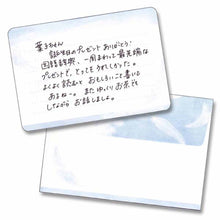 葉子ちゃん
お誕生日のプレゼントありがとう!
国語辞典、一周まわって最先端な
プレゼントで、とってもうれしかった。
よくよく読むとおもしろいこと書いて
あるねー。またゆっくりお茶でも
しながらお話しましょ。